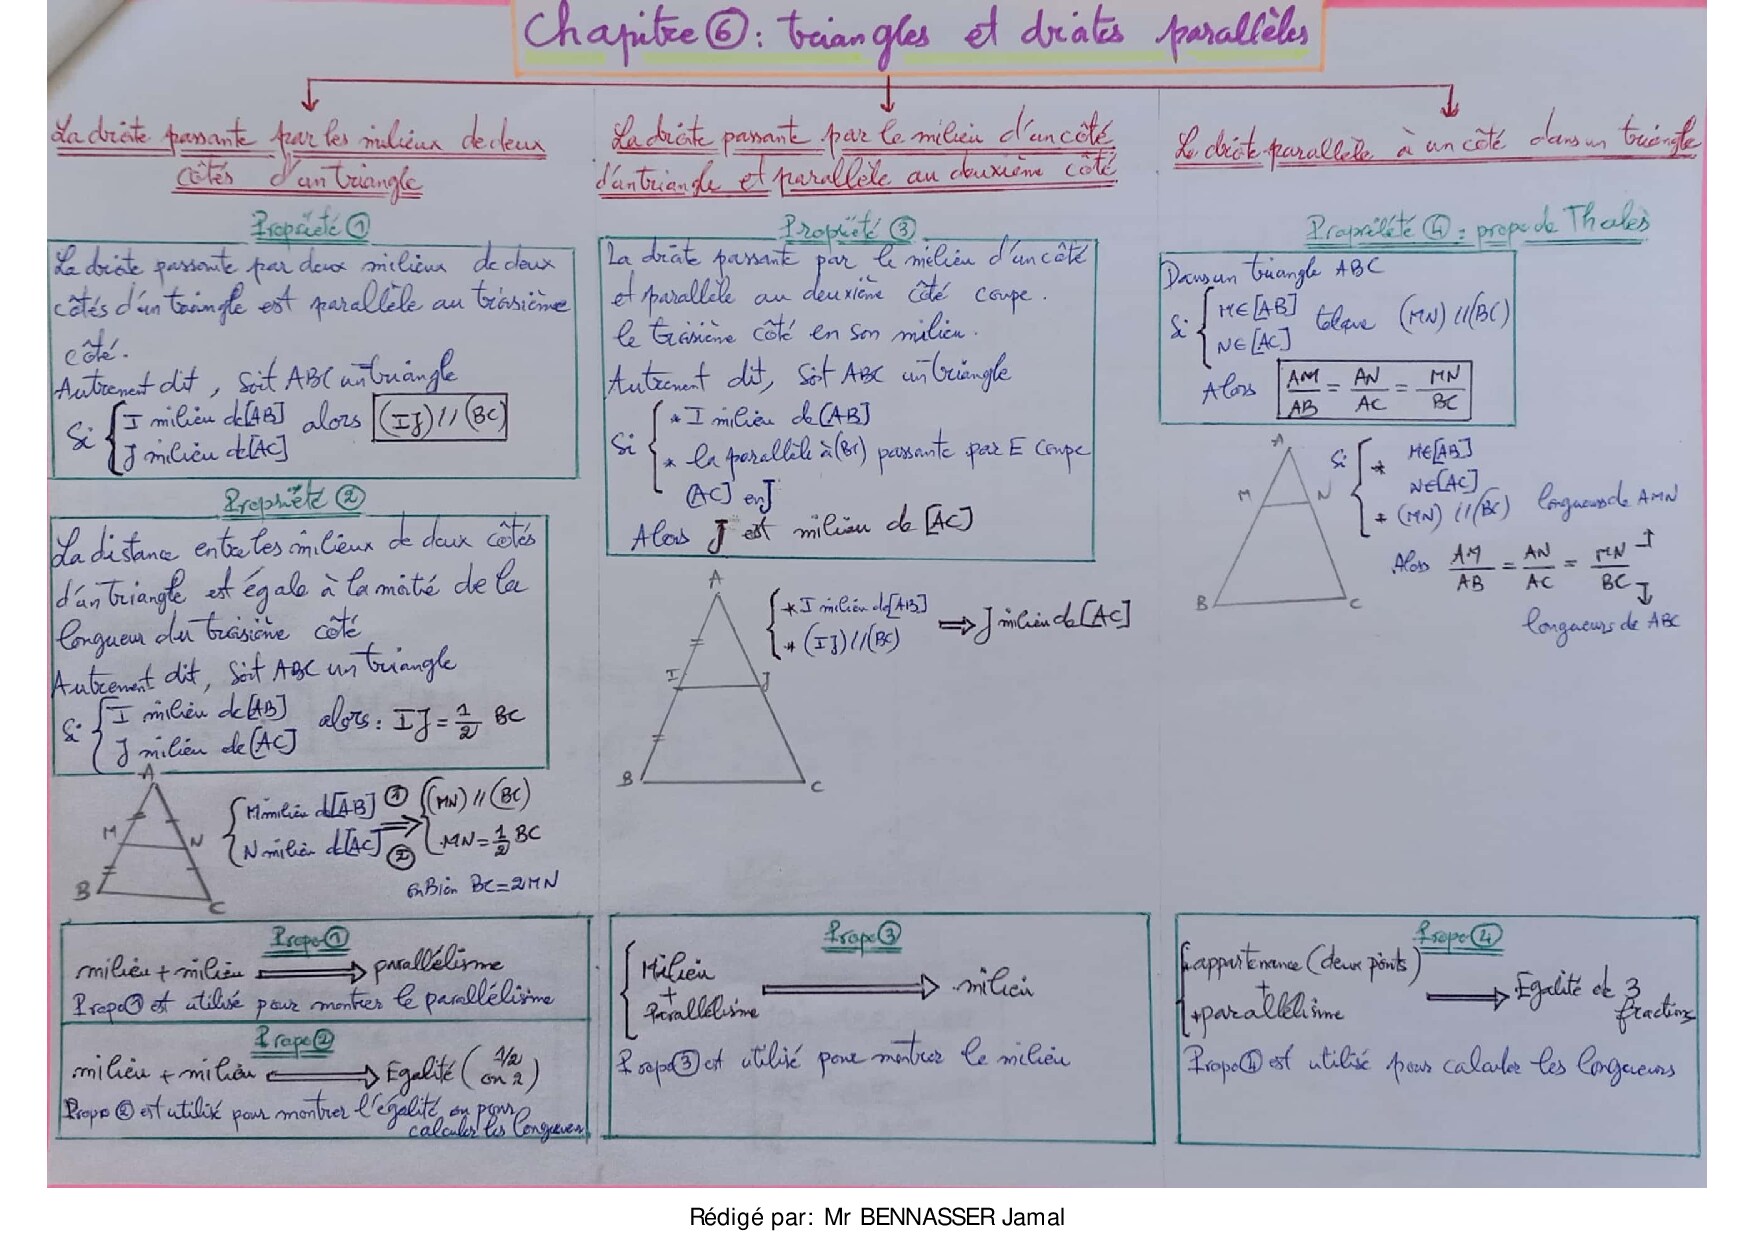 Chapitre ⑥: triangles et droites parallèles
La droite passante par les milieux de deux
côtés d'un triangle
Propriété ①
La droite passante par deux milieux de deux
côtés d'un triangle est parallèle au troisième
côté.
Autrement dit, soit ABC un triangle
Si { I milieu de [AB]
J milieu de [AC]
alors (IJ)//(BC)
Propriété ②
La distance entre les milieux de deux côtés
d'un triangle est égale à la moitié de la
longueur du troisième côté
Autrement dit, soit ABC un triangle
Si { I milieu de [AB]
J milieu de [AC]
alors: IJ = 1/2 BC
A
M
N
B
C
{ M milieu d[AB]
N milieu d[AC]
① ⇒ ②
{ (MN) // (BC)
MN = 1/2 BC
ou Bien BC=2MN
Propo ①
milieu + milieu ⟹ parallélisme
Propo ① est utilisé pour montrer le parallélisme
Propo ②
milieu + milieu ⟹ Egalité ( 1/2 ou 2 )
Propo ② est utilisé pour montrer l'égalité ou pour
calculer les longueurs
La droite passante par le milieu d'un côté
d'un triangle et parallèle au deuxième côté
Propriété ③
La droite passante par le milieu d'un côté
et parallèle au deuxième côté coupe.
le troisième côté en son milieu.
Autrement dit, soit ABC un triangle
Si { * I milieu de [AB]
* la parallèle à (BC) passante par E coupe
[AC] en J
Alors J est milieu de [AC]
A
I
J
B
C
{ * I milieu de [AB]
* (IJ)//(BC)
⇒ J milieu de [AC]
Propo ③
{ Milieu
+
Parallélisme
⟹ milieu
Propo ③ est utilisé pour montrer le milieu
La droite parallèle à un côté dans un triangle
Propriété ④ : propo de Thales
Dans un triangle ABC
Si { M∈[AB]
N∈[AC]
telque (MN) //(BC)
Alors AM/AB = AN/AC = MN/BC
A
M
N
B
C
Si { * M∈[AB]
N∈[AC]
* (MN) //(BC)
longueurs de AMN
Alors AM/AB = AN/AC = MN/BC
longueurs de ABC
Propo ④
{ appartenance (deux points)
+
+parallélisme
⟹ Egalité de 3
fractions
Propo ④ est utilisé pour calculer les longueurs
Rédigé par: Mr BENNASSER Jamal